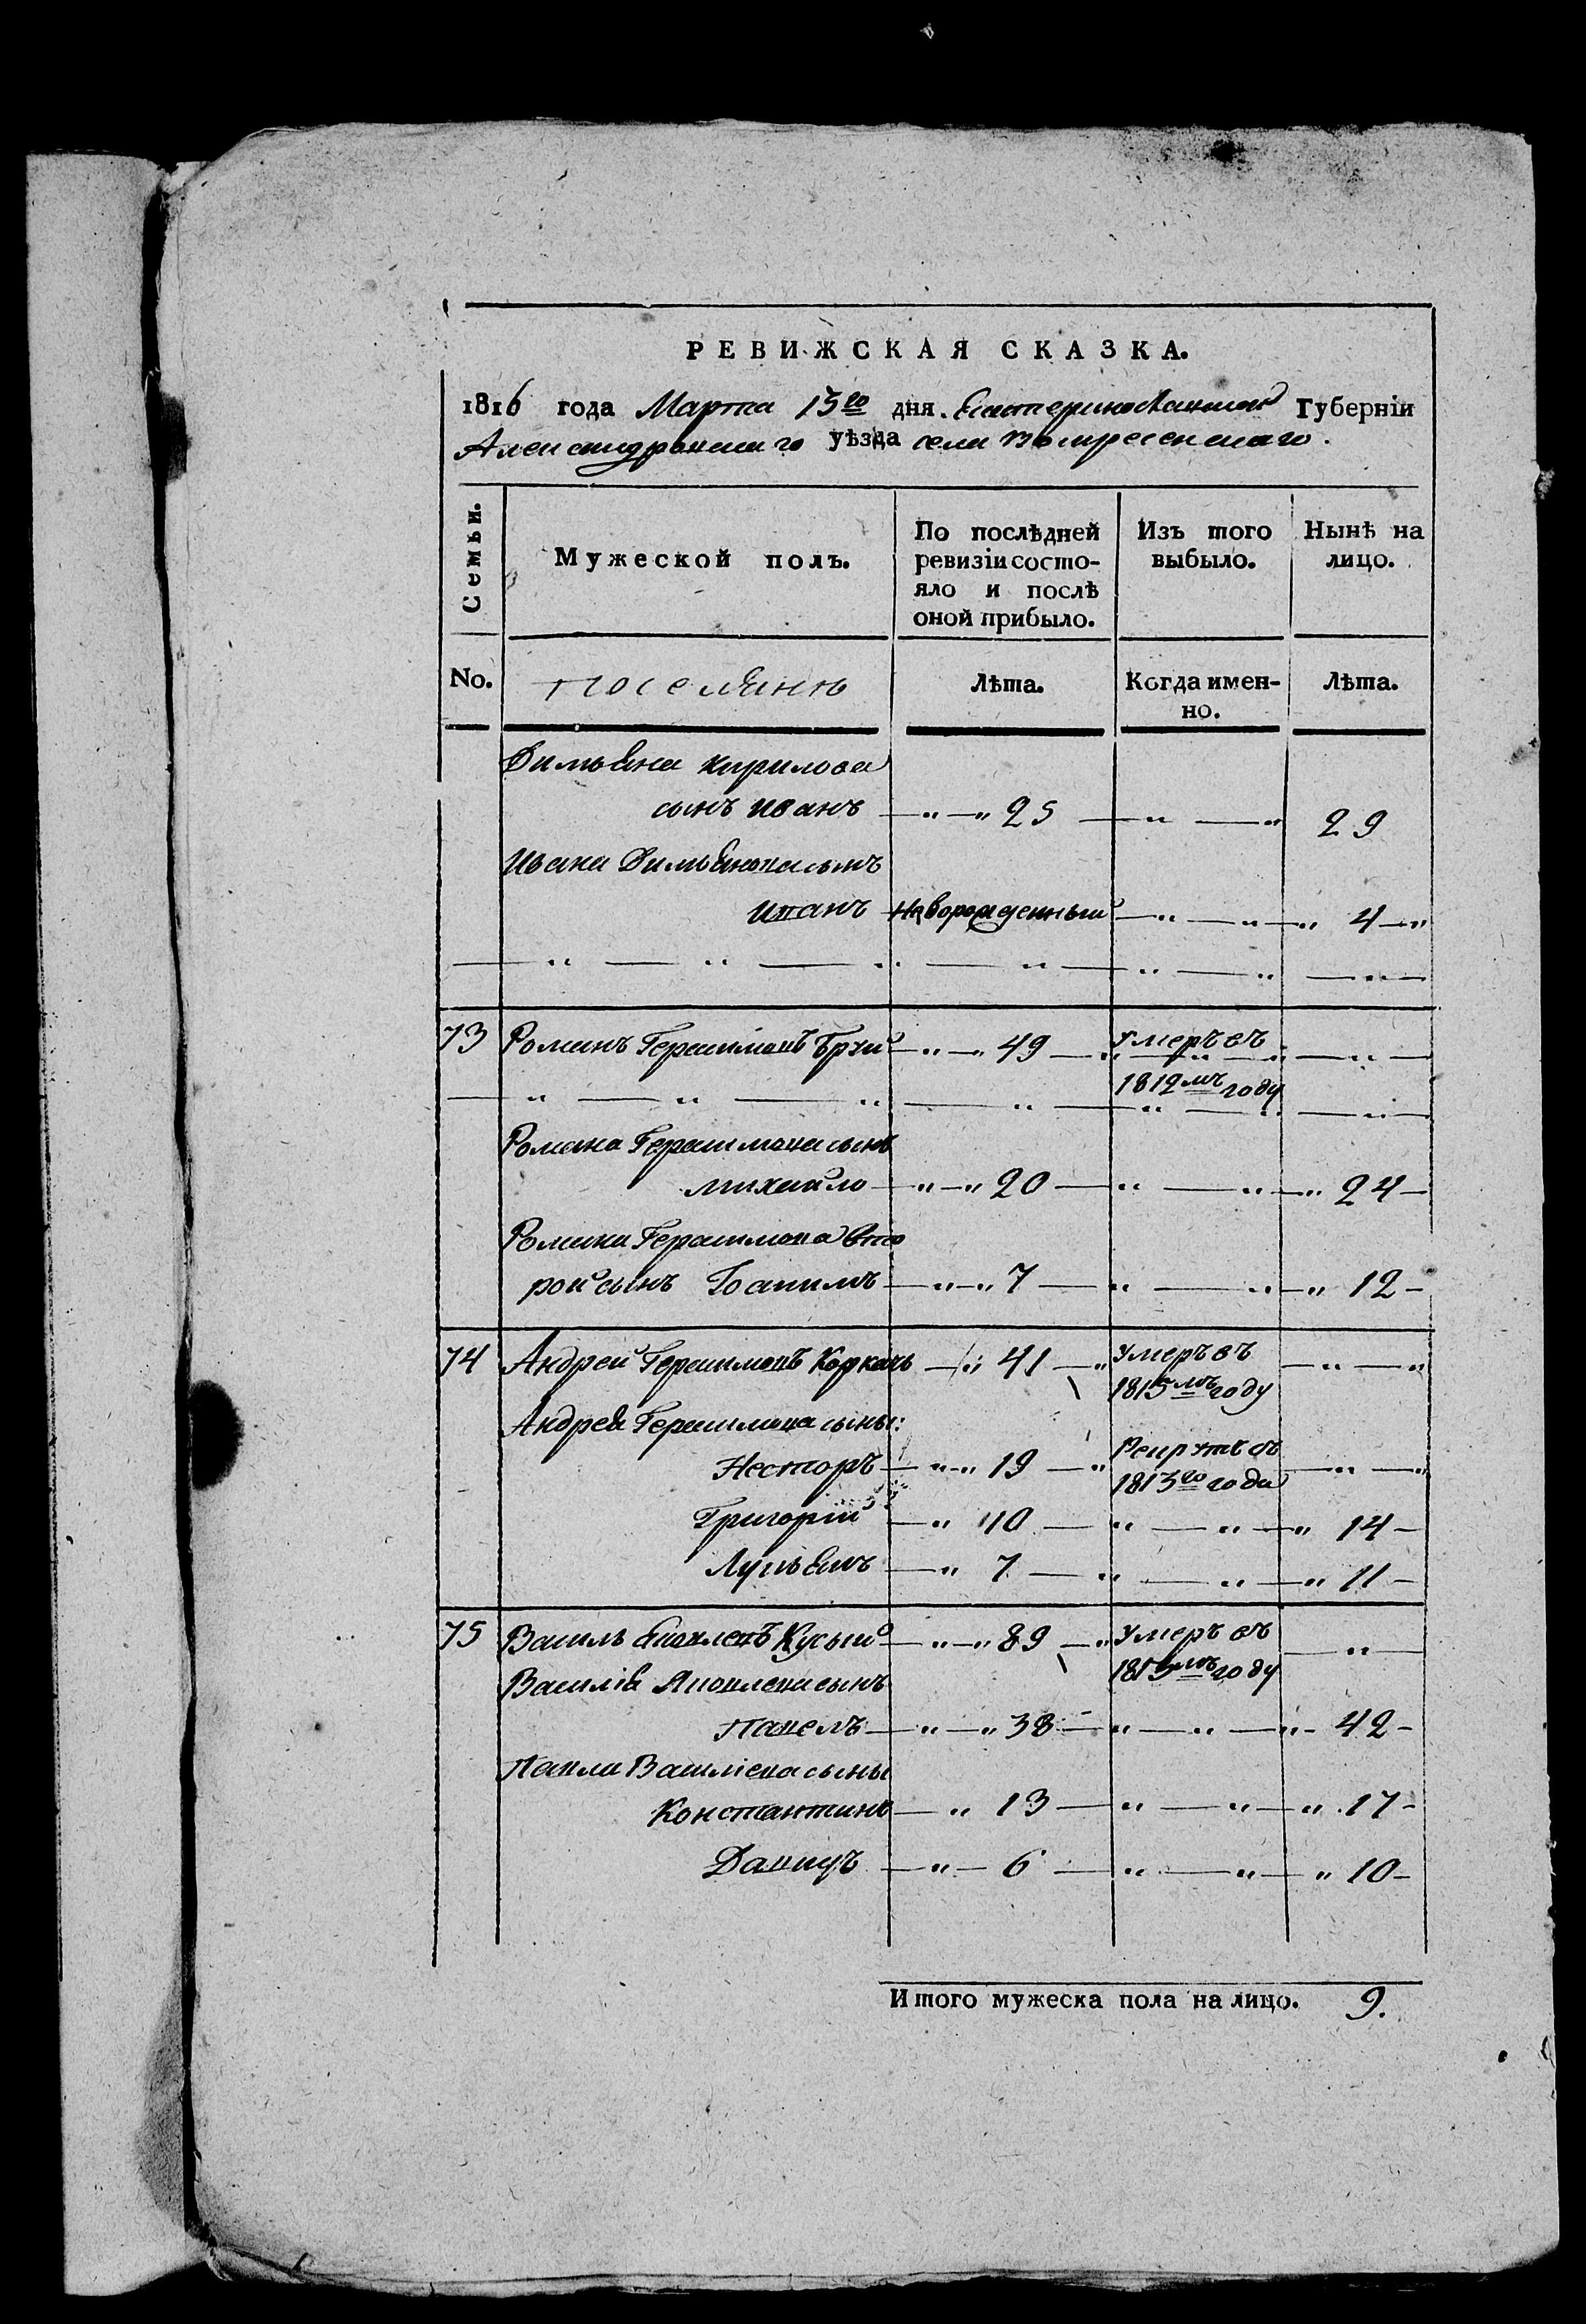 РЕВИЖСКАЯ СКАЗКА.
1816 года Марта 15го дня. Екатеринославской Губернiи
Александровскаго уѣзда села Воскресенскаго.
Семьи.
Мужеской полъ.
По послѣдней ревизiи состо-
яло и послѣ
оной прибыло.
Изъ того
выбыло.
Нынѣ на
лицо.
No.
поселянѣ
Лѣта.
Когда имен-
но.
Лѣта.
Димьяна Кирилова
сынъ Иванъ 25 29
Ивана Димьянова сынъ
Иванъ Новорожденный 4
73 Романъ Герасимовъ 49 Умеръ въ
1812мъ году
Романа Герасимова сынъ
Михайло 20 24
Романа Герасимова вто
рой сынъ Іоакимъ 7 12
74 Андрей Герасимовъ Коркачь 41 Умеръ въ
1815мъ году
Андрея Герасимова сыны:
Несторъ 19 Рекрутъ съ
1813го года
Григорій 10 14
Лукьянъ 7 11
75 Василь Яковлевъ Кусый 89 Умеръ въ
1813мъ году
Василія Яковлева сынъ
Павелъ 38 42
Павла Василіева сыны
Константинъ 13 17
Давидъ 6 10
Итого мужеска пола на лицо. 9.